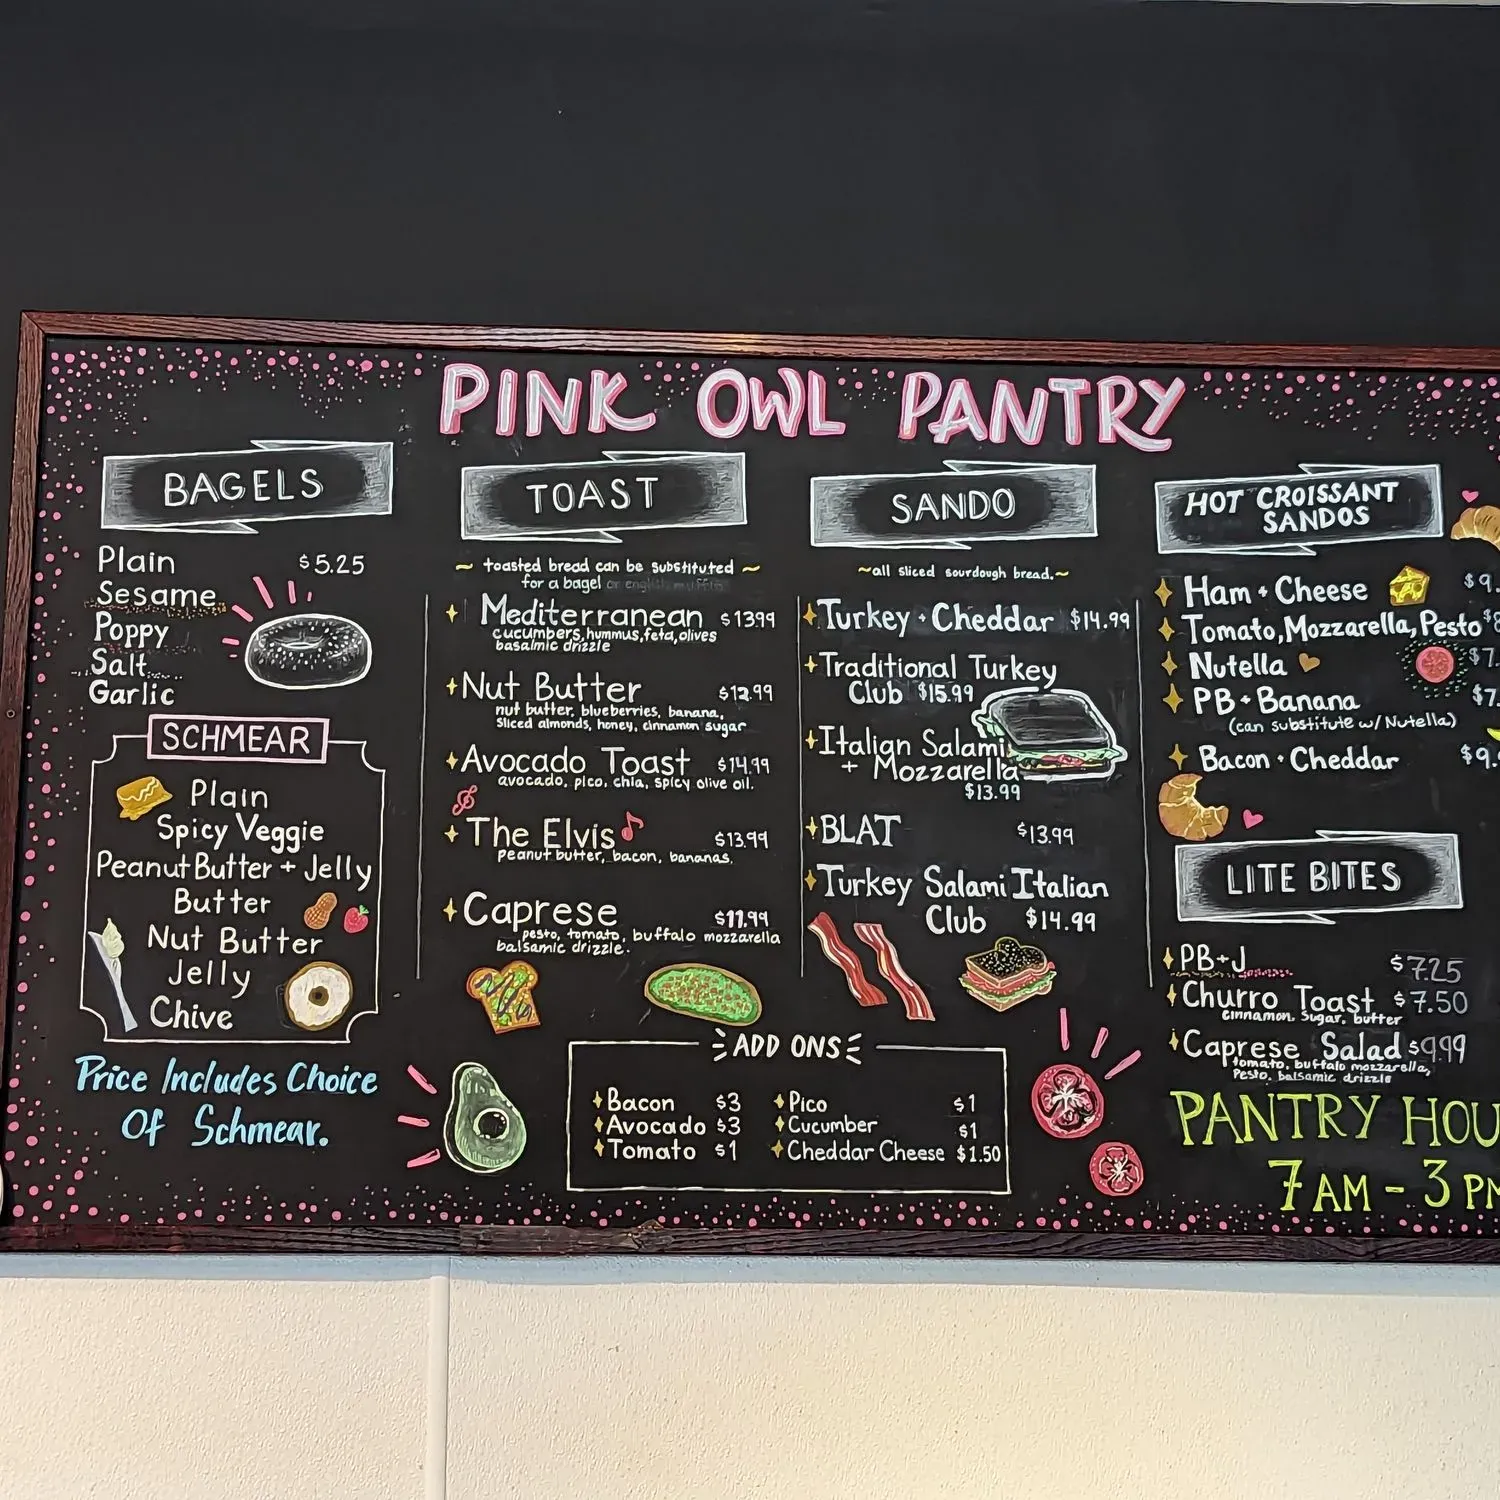 PINK OWL PANTRY
BAGELS
Plain $5.25
Sesame
Poppy
Salt
Garlic
SCHMEAR
Plain
Spicy Veggie
Peanut Butter + Jelly
Butter
Nut Butter
Jelly
Chive
Price Includes Choice
Of Schmear.
TOAST
~ toasted bread can be substituted ~
for a bagel or english muffin
Mediterranean $1399
cucumbers, hummus, feta, olives
basalmic drizzle
Nut Butter $12.99
nut butter, blueberries, banana,
sliced almonds, honey, cinnamon sugar
Avocado Toast $14.99
avocado, pico, chia, spicy olive oil.
The Elvis $13.99
peanut butter, bacon, bananas.
Caprese $11.99
pesto, tomato, buffalo mozzarella
balsamic drizzle.
SANDO
~all sliced sourdough bread.~
Turkey + Cheddar $14.99
Traditional Turkey
Club $15.99
Italian Salami
+ Mozzarella
$13.99
BLAT $13.99
Turkey Salami Italian
Club $14.99
ADD ONS
Bacon $3
Avocado $3
Tomato $1
Pico $1
Cucumber $1
Cheddar Cheese $1.50
HOT CROISSANT
SANDOS
Ham + Cheese $9.
Tomato, Mozzarella, Pesto
Nutella $7.
PB + Banana $7.
(can substitute w/ Nutella)
Bacon + Cheddar $9.
LITE BITES
PB+J $7.25
Churro Toast $7.50
cinnamon, sugar, butter
Caprese Salad $9.99
tomato, buffalo mozzarella,
Pesto, balsamic drizzle
PANTRY HOU
7 AM - 3 PM